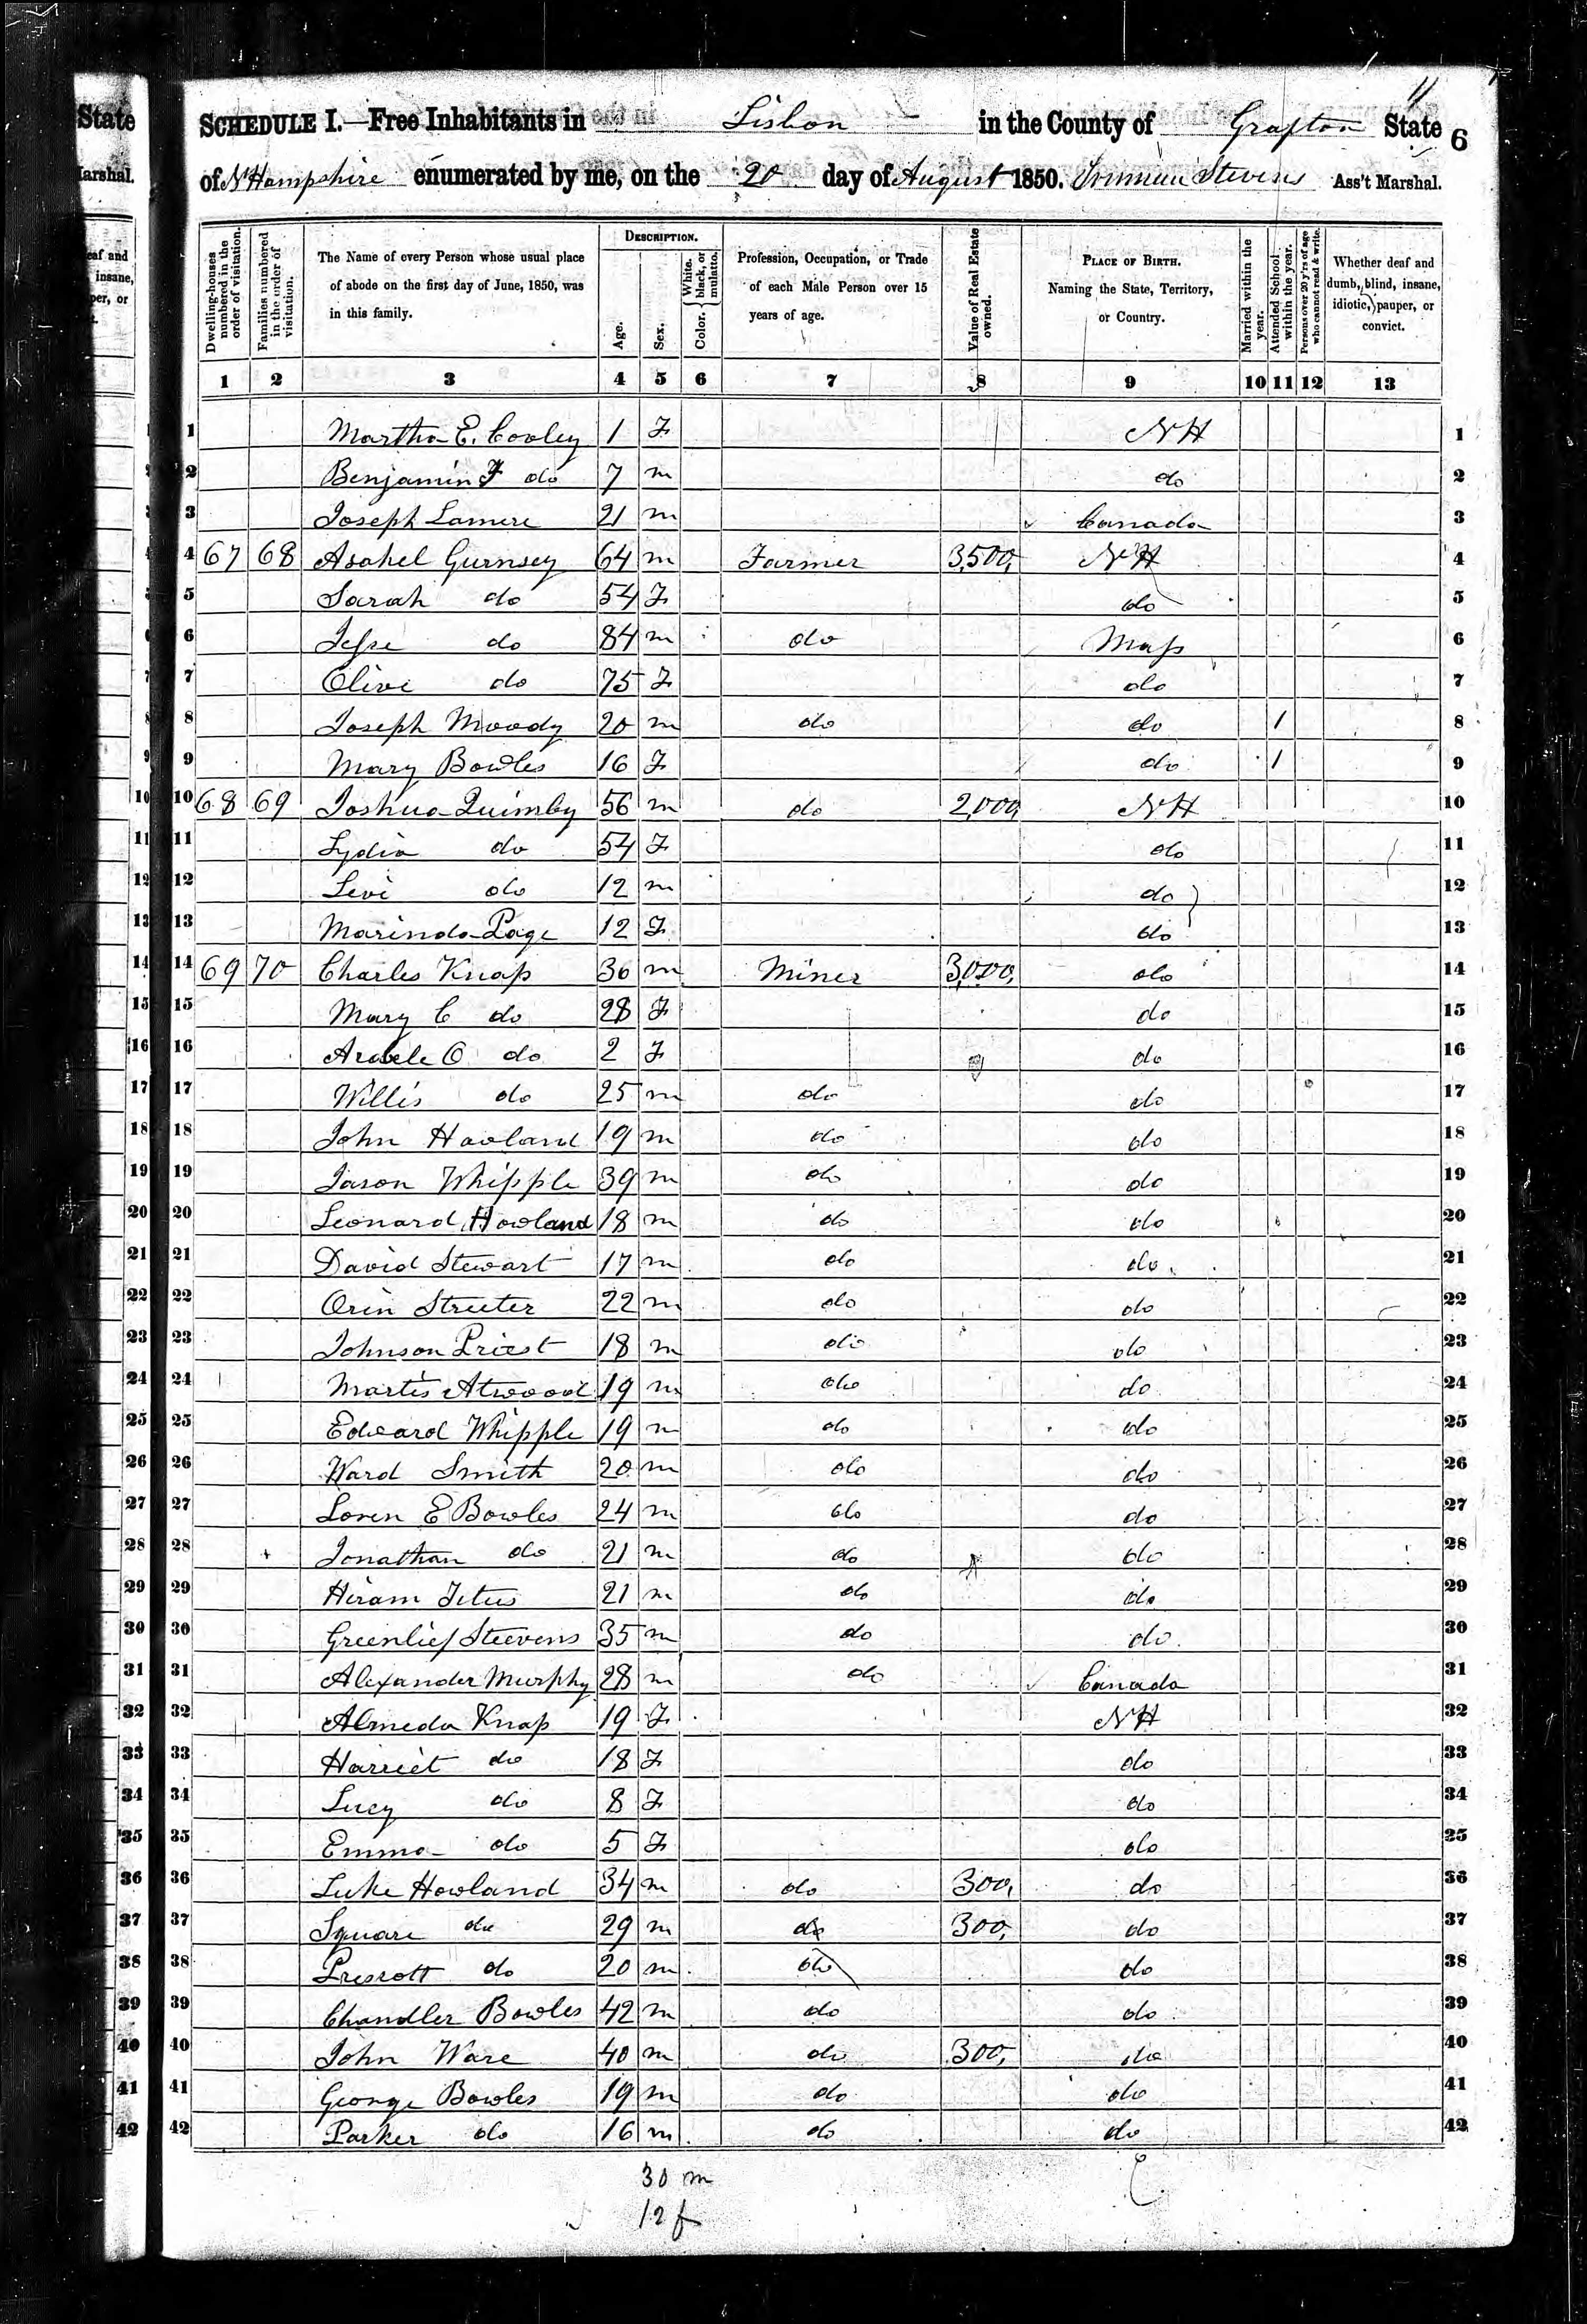 11
SCHEDULE I.—Free Inhabitants in Lisbon in the County of Grafton State 6
of N Hampshire enumerated by me, on the 20 day of August 1850. Stevens Ass't Marshal.
Dwelling-houses numbered in the order of visitation.
Families numbered in the order of visitation.
The Name of every Person whose usual place of abode on the first day of June, 1850, was in this family.
DESCRIPTION.
Age.
Sex.
Color. { White, black, or mulatto.
Profession, Occupation, or Trade of each Male Person over 15 years of age.
Value of Real Estate owned.
PLACE OF BIRTH. Naming the State, Territory, or Country.
Married within the year.
Attended School within the year.
Persons over 20 y'rs of age who cannot read & write.
Whether deaf and dumb, blind, insane, idiotic, pauper, or convict.
1 2 3 4 5 6 7 8 9 10 11 12 13
1 Martha E. Cooley 1 F NH 1
2 Benjamin F do 7 m do 2
3 Joseph Lamere 21 m Canada 3
4 67 68 Asahel Gurnsey 64 m Farmer 3,500, NH 4
5 Sarah do 54 F do 5
6 Jesse do 84 m do Mass 6
7 Olive do 75 F do 7
8 Joseph Moody 20 m do do 1 8
9 Mary Bowles 16 F do 1 9
10 68 69 Joshua Quimby 56 m do 2,000, NH 10
11 Lydia do 54 F do 11
12 Levi do 12 m do 12
13 Marinda Page 12 F do 13
14 69 70 Charles Knap 36 m Miner 3,000, do 14
15 Mary C do 28 F do 15
16 O do 2 F do 16
17 Willis do 25 m do do 17
18 John Howland 19 m do do 18
19 Jason Whipple 39 m do do 19
20 Leonard Howland 18 m do do 20
21 David Stewart 17 m do do 21
22 Orin Streeter 22 m do do 22
23 Johnson Priest 18 m do do 23
24 Martis Atwood 19 m do do 24
25 Edward Whipple 19 m do do 25
26 Ward Smith 20 m do do 26
27 Loren E Bowles 24 m do do 27
28 Jonathan do 21 m do do 28
29 Hiram Titus 21 m do do 29
30 Greenlief Steevens 35 m do do 30
31 Alexander Murphy 28 m do Canada 31
32 Almeda Knap 19 F NH 32
33 Harriet do 18 F do 33
34 Lucy do 8 F do 34
35 Emma do 5 F do 25
36 Luke Howland 34 m do 300, do 36
37 Square do 29 m do 300, do 37
38 Prescott do 20 m do do 38
39 Chandler Bowles 42 m do do 39
40 John Ware 40 m do 300, do 40
41 George Bowles 19 m do do 41
42 Parker do 16 m do do 42
30 m
12 f